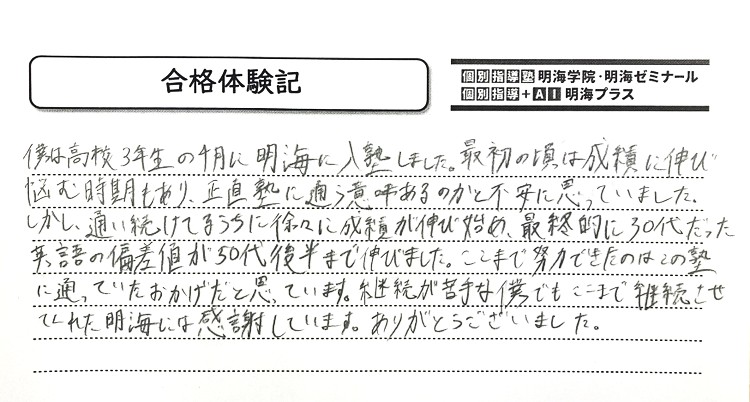 合格体験記
個別指導塾 明海学院・明海ゼミナール
個別指導+AI 明海プラス
僕は高校3年生の4月に明海に入塾しました。最初の頃は成績に伸び
悩む時期もあり、正直塾に通う意味あるのかと不安に思っていました。
しかし、通い続けてるうちに徐々に成績が伸び始め、最終的に30代だった
英語の偏差値が50代後半まで伸びました。ここまで努力できたのはこの塾
に通っていたおかげだと思っています。継続が苦手な僕でもここまで継続させ
てくれた明海には感謝しています。ありがとうございました。